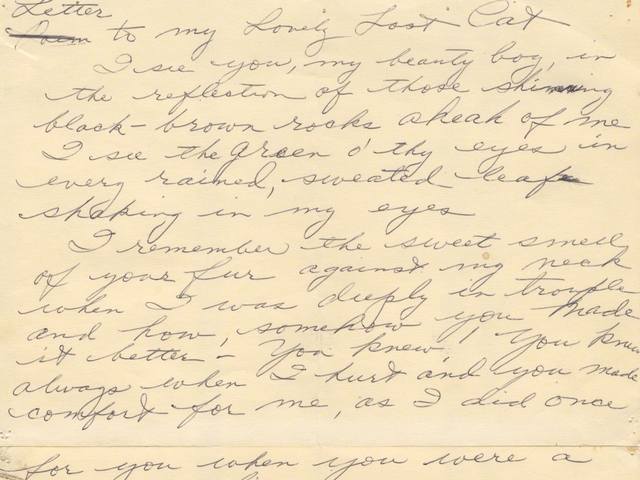 Letter
Poem to my Lovely Lost Cat
I see you, my beauty boy, in
the reflection of those shinning
black-brown rocks ahead of me
I see the green o' thy eyes in
every rained, sweated leaf
shaking in my eyes
I remember the sweet smell
of your fur against my neck
when I was deeply in trouble
and how, somehow you made
it better - You knew! You knew
always when I hurt and you made
comfort for me, as I did once
for you when you were a